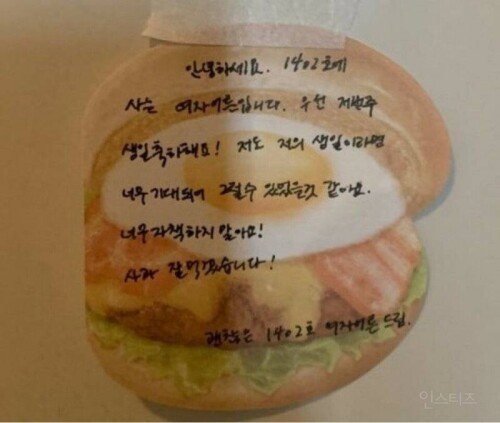 안녕하세요. 1402호에
사는 여자어른입니다. 우선 저번주
생일축하해요! 저도 저의 생일이라면
너무 기대되어 그럴수 있었을것 같아요.
너무 자책하지 말아요!
사과 잘먹겠습니다!
괜찮은 1402호 여자어른 드림.
인스티즈